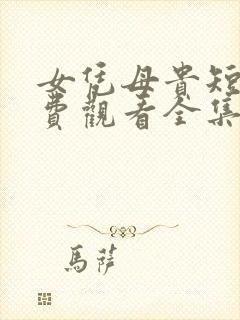 女凭母貴短
費觀看全集
馬薩